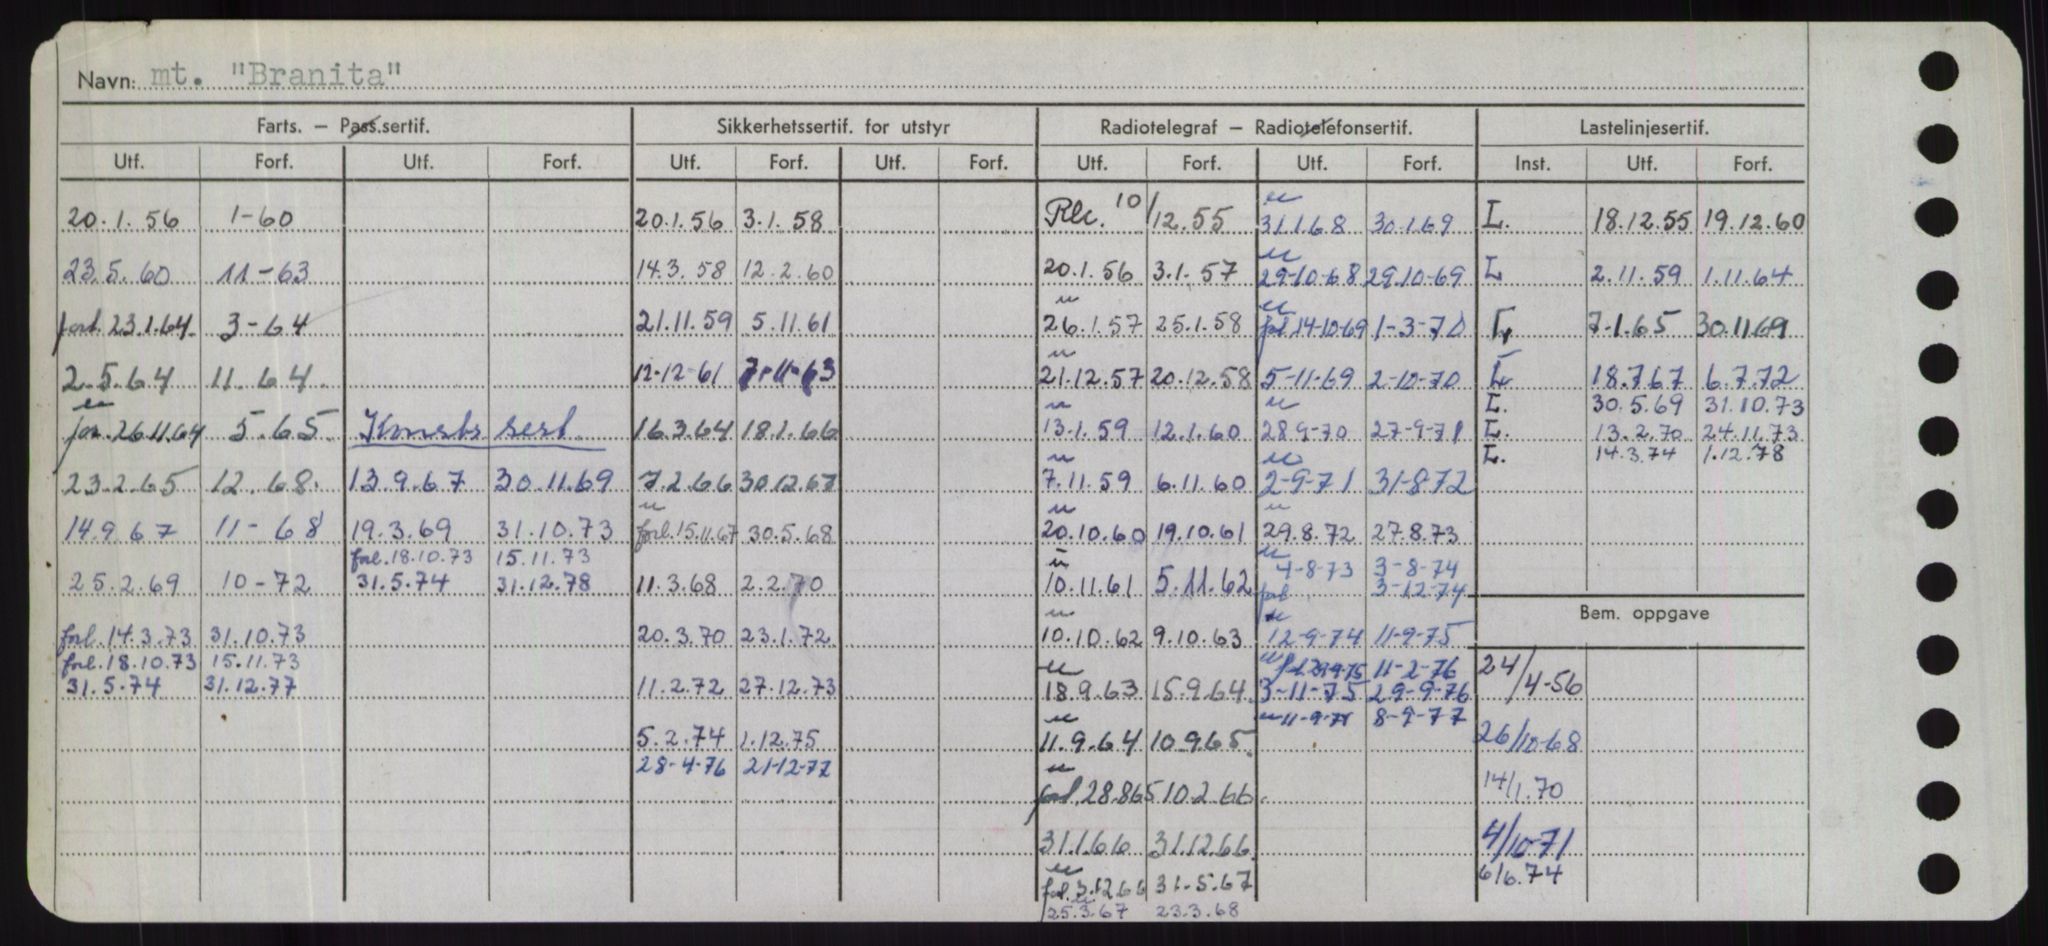 Navn: mt. "Branita"
Farts. — Pass.sertif. Sikkerhetssertif. for utstyr Radiotelegraf — Radiotelefonsertif. Lastelinjesertif.
Utf. Forf. Utf. Forf. Utf. Forf. Utf. Forf. Utf. Forf. Utf. Forf. Inst. Utf. Forf.
20.1.56 1-60 20.1.56 3.1.58 10/12.55 31.1.68 30.1.69 L. 18.12.55 19.12.60
23.5.60 11-63 14.3.58 12.2.60 20.1.56 3.1.57 29-10-68 29.10-69 L 2.11.59 1.11.64
forl. 23.1.64. 3-64 21.11.59 5.11.61 26.1.57 25.1.58 14-10-69 1-3-70 L 7-1.65 30.11.69
2.5.64 11.64. 12-12-61 7-11-63 21.12.57 20.12.58 5-11-69 2-10-70 L 18.7.67 6.7.72
L. 30.5.69 31.10.73
26.11.64 5.65 Konstr. sert. 16.3.64 18.1.66 13.1.59 12.1.60 28.9-70 27-9-71 L. 13.2.70 24.11.73
L. 14.3.74 1.12.78
23.2.65 12.68. 13.9.67 30.11.69 7.2.66 30.12.67 7.11.59 6.11.60 2-9-71 31-8-72
14.9.67 11-68 19.3.69 31.10.73 forl. 15.11.67 30.5.68 20.10.60 19.10.61 29.8.72 27.8.73
forl. 18.10.73 15.11.73 4-8-73 3-8-74
25.2.69 10-72 31.5.74 31.12.78 11.3.68 2.2.70 10.11.61 5.11.62 3-12-74
forl. 14.3.73 31.10.73 20.3.70 23.1.72 10.10.62 9.10.63 12-9-74 11-9-75 Bem. oppgave
forl. 18.10.73 15.11.73 11-2-76 24/4-56
31.5.74 31.12.77 11.2.72 27.12.73 18.9.63 15.9.64. 3-11-75 29-9-76
8-9-77
5.2.74 1.12.75 11.9.64 10.9.65. 26/10-68
28-4-76 21-12-77
28.8.65 10.2.66. 14/1.70
31.1.66 31.12.66. 4/10-71
forl. 3.12.66 31-5.67 6/6.74
25.3.67 23.3.68